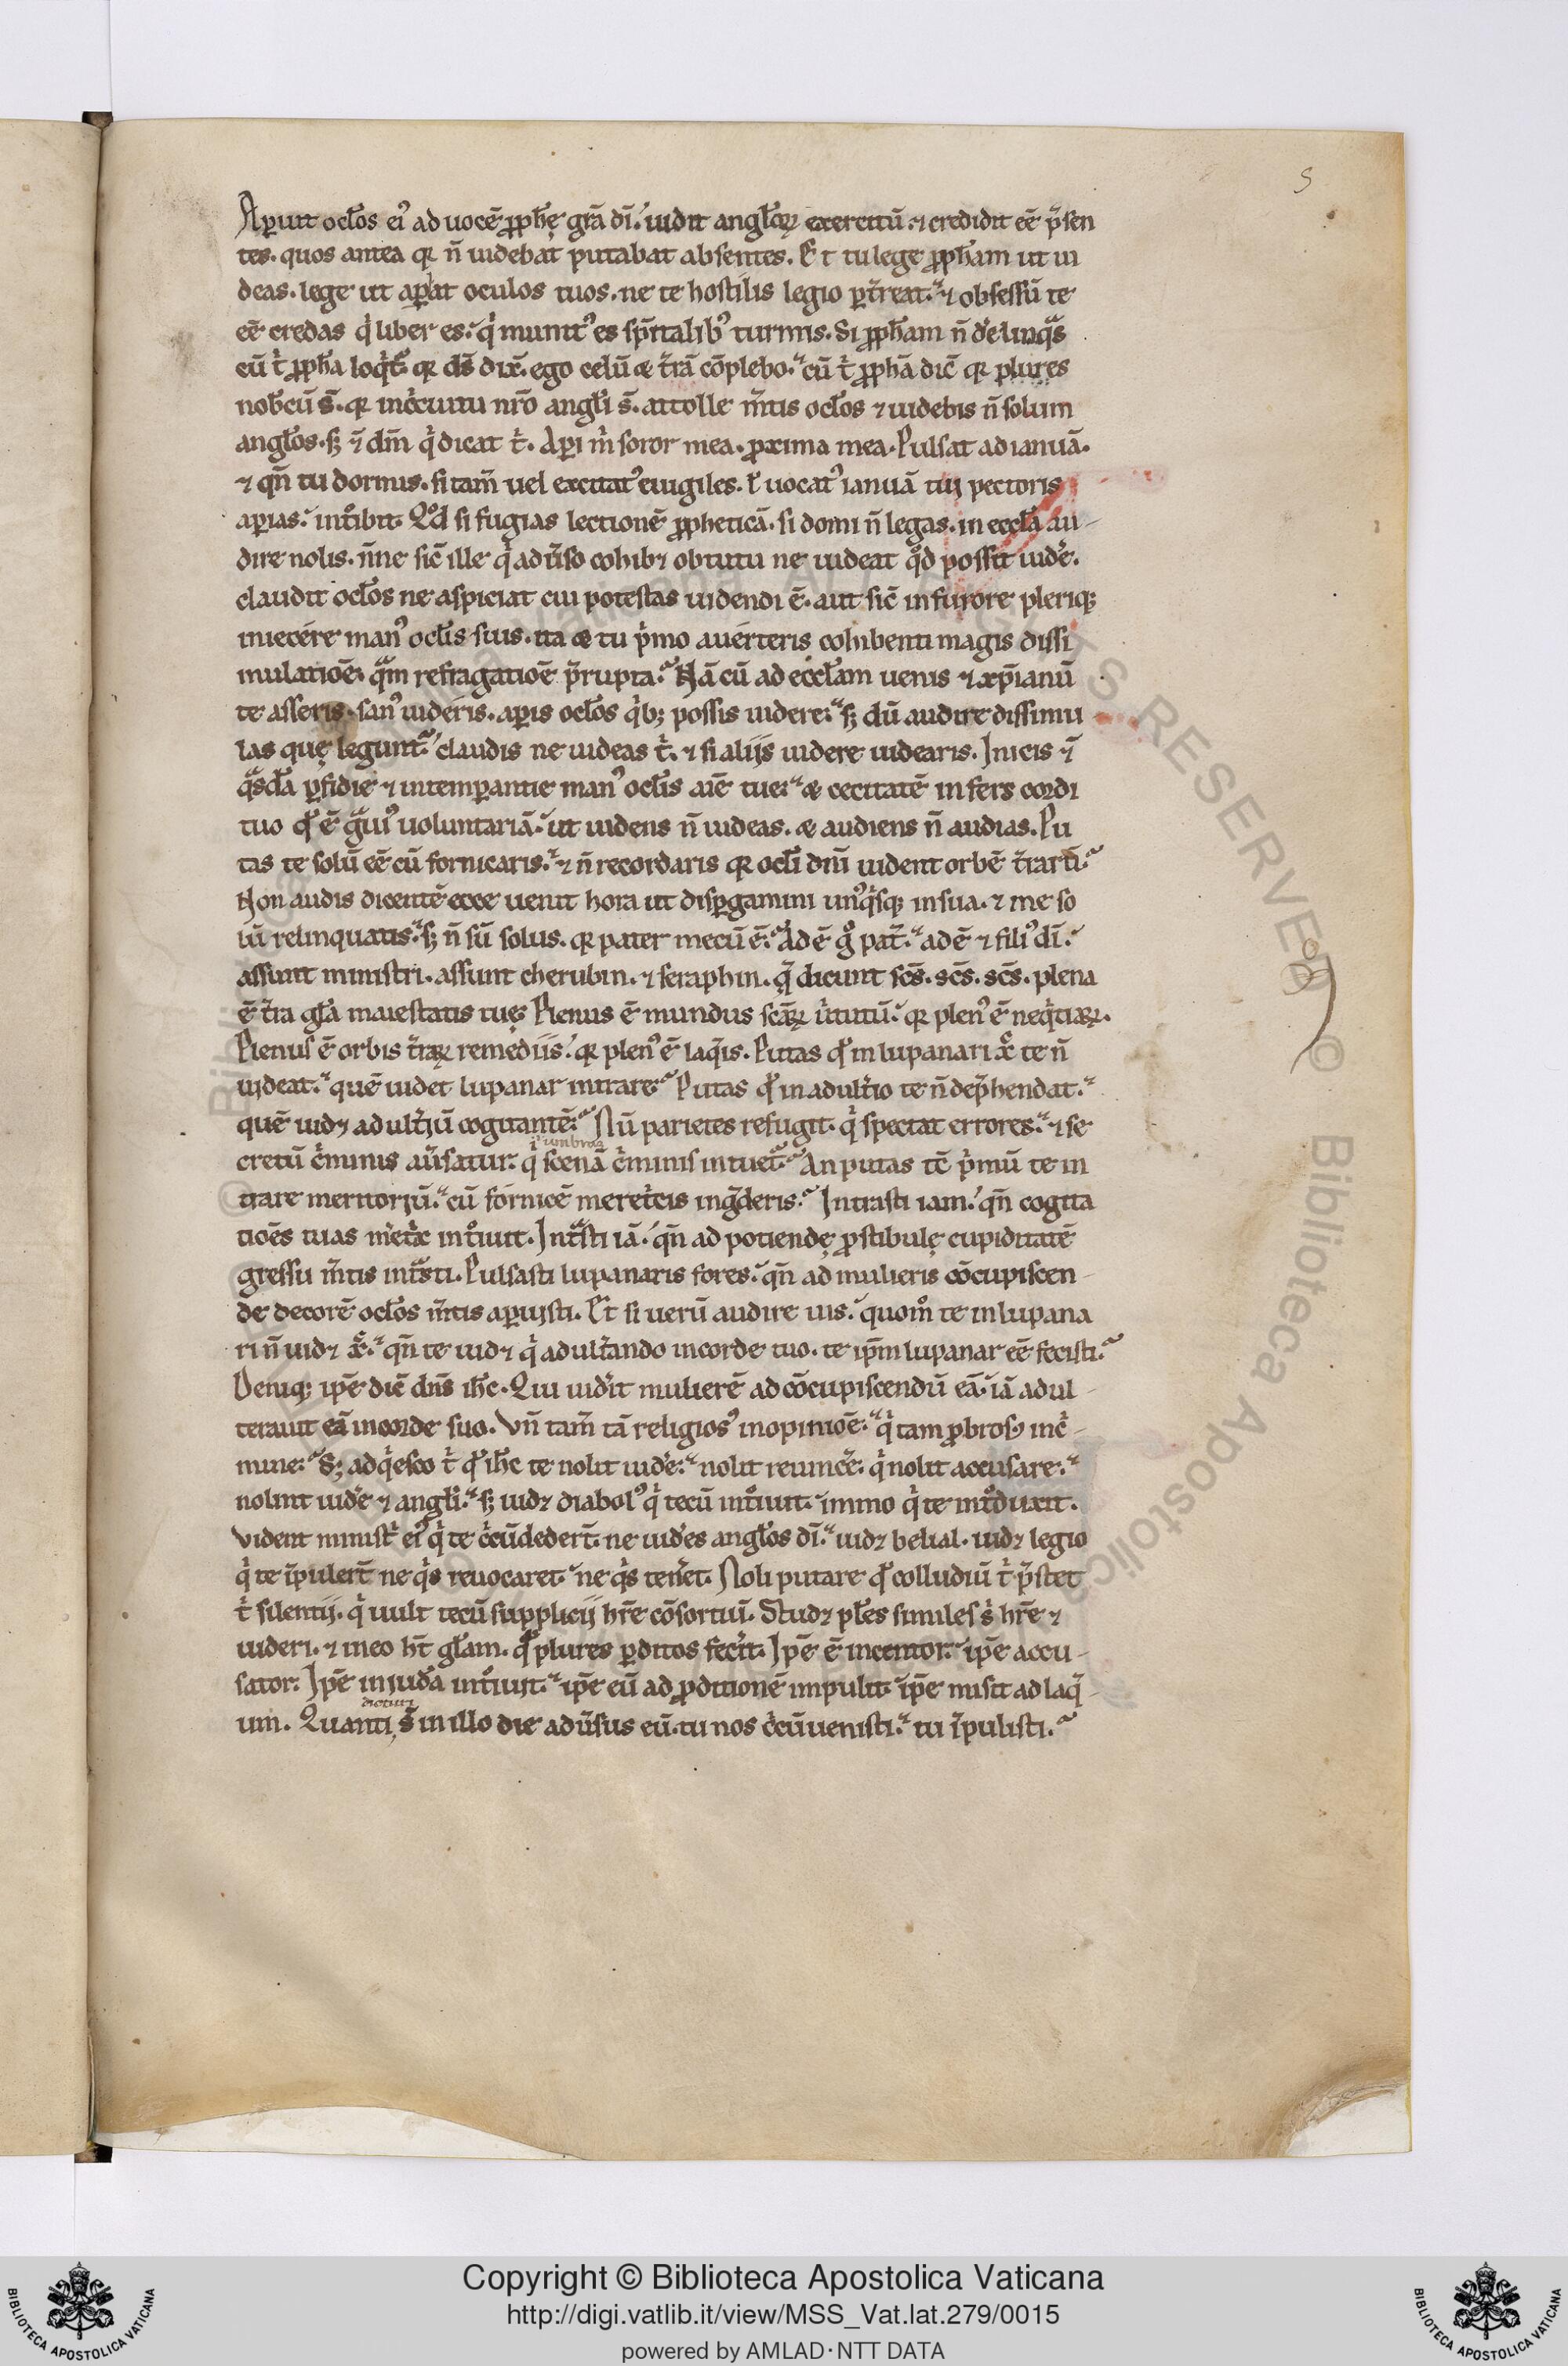 5
Aperuit ocl̃os ei᾽ ad uocē ꝓph̃ę gr̃a dī. uidit angl̃oꝝ exercitū. ⁊ credidit eē p̃sen
tes. quos antea qꝛ ñ uidebat putabat absentes. Et tu lege ꝓph̃am ut ui
deas. lege ut aꝑiat oculos tuos. ne te hostilis legio ꝑt̃reat. ⁊ obsessū te
eē credas qͥ liber es. qͥ munit᾽ es sp̃italib᾽ turmis. Si ꝓph̃am ñ derelinqͣs
cū tͥ ꝓph̃a loqͥt᷑. qꝛ ds̄ dix̄. ego celū æ t̃rā cōplebo. cū tͥ ꝓphā dic̄ qꝛ plures
nob̃cū s̄. qꝛ inc̃cuitu nr̃o angl̃i s̄. attolle m̃tis ocl̃os ⁊ uidebis ñ solum
angl̃os. sꝫ ⁊̃ dm̃ qͥ dicat tͥ. Aꝑi mͥ soror mea. proxima mea. Pulsat ad ianuā.
⁊ qñ tu dormis. si tam̃ uel excitat᾽ euigiles. ł uocat᾽ ianuā tuj pectoris
aperias. intͦibit. Qd̃ si fugias lectionē ꝓpheticā. si domi ñ legas. in eccl̃a au-
dire nolis. ñne sic̄ ille qͥ aduẽso cohibꝫ obtutu ne uideat qd̃ possit uidẽ.
claudit ocl̃os ne aspiciat cui potestas uidendi ē. aut sic̄ in furore pleriqꝫ
iniecere man᾽ ocl̃is suis. ita æ tu pͥmo auerteris cohibenti magis dissi
mulatiōe. qͣm refragatiōe p̃rupta. Nā cū ad eccl̃am uenis ⁊ xp̃ianū
te asseris. san᾽ uideris. aperis ocl̃os qͥbꝫ possis uidere. sꝫ dū audire dissimu
las quę legunt᷑. claudis ne uideas tͥ. ⁊ si alijs uidere uidearis. Inicis ⁊̃
qͣsdã ꝑfidie ⁊ intemꝑantie man᾽ ocl̃is aīe tue. æ cecitatē infers cordi
tuo qͩ ē gͣui᾽ uoluntariā. ut uidens ñ uideas. æ audiens ñ audias. Pu
tas te solū eē cū fornicaris. ⁊ ñ recordaris qꝛ ocl̃i dn̄i uident orbē t̃rarū.
Non audis dicentē ecce uenit hora ut disꝑgamini un᾽qͥsqꝫ in sua. ⁊ me so
lū relinquatis. sꝫ ñ sū solus. qꝛ pater mecū ē. Adē gͦ pat̃. adē ⁊ fili᾽ dī.
assunt ministri. assunt cherubin. ⁊ seraphin. q̃ dicunt scs̄. scs̄. scs̄. plena
ē t̃ra gl̃a maiestatis tuę. Plenus ē mundus scāꝝ uͥtutū. qꝛ plen᾽ ē neqͥtiaꝝ.
Plenus ē orbis t̃raꝝ remediis. qꝛ plen᾽ ē laqͥis. Putas qͩ in lupanari xp̄c te ñ
uideat. quē uidet lupanar intrare. Putas qͩ in adult̃io te ñ dep̃hendat.
quē uidꝫ adult̃iū cogitantē. Nū parietes refugit. qͥ spectat errores. ⁊ se
ł umbrā
cretū cͥminis auẽsatur. qͥ scenā cͥminis intuet᷑. An putas tc̄ pͥmū te in
trare meritorjū. cū fornicē meretͥcis ingͣderis. Intrasti iam. qñ cogita
tiōes tuas m̃etͥx intͦiuit. Intͣsti iā. qñ ad potiendę prostibulę cupiditatē
gressu m̃tis intͣsti. Pulsasti lupanaris fores. qñ ad mulieris cōcupiscen-
de decorē ocl̃os m̃tis aperuisti. Et si uerū audire uis. quomͦ te in lupana
ri ñ uidꝫ xp̄c. qñ te uidꝫ qͥ adult̃ando in corde tuo. te ip̄m lupanar eē fecisti.
Deniqꝫ ip̄e dic̄ dns̄ ih̄c. Qui uid̃it mulierē ad cōcupiscendū eā. iā adul-
terauit eā in corde suo. Vñ tam̃ tā religios᾽ in opiniōe. qͥ tam ꝓbros᾽ in cͥ-
mine. Sꝫ adqͥesco tͥ qͩ ih̄c te nolit uidẽ. nolit reuincẽ. qͥ nolit accusare.
nolint uidẽ ⁊ angl̃i. sꝫ uidꝫ diabol᾽ qͥ tecū intͦiuit. immo qͥ te intͦduxit.
Vident ministͥ ei᾽ qͥ te cͥcūdedert̄. ne uidẽs angl̃os dī. uidꝫ belial. uidꝫ legio
qͥ te ĩpulert̄ ne qͥs reuocaret. ne qͥs ten̄et. Noli putare qͩ colludiū tͥ p̃stet
tͥ silentij. qͥ uult tecū supplicij hr̃e cōsortiū. Studꝫ pl̃es similes sͥ hr̃e ⁊
uideri. ⁊ in eo ht̄ gl̃am. qͩ plures ꝑditos fec̃it. Ip̄e ē incentor. ip̄e accu-
sator. Ip̄e in juda intͦiuit. ip̄e eū ad ꝓditionē impulit. ip̄e misit ad laq̃-
dicturi
um. Quanti s̄ in illo die aduẽsus eū. tu nos cͥcūuenisti. tu ĩpulisti.
© Biblioteca Apostolica Vaticana
ALL RIGHTS RESERVED
Copyright © Biblioteca Apostolica Vaticana
http://digi.vatlib.it/view/MSS_Vat.lat.279/0015
powered by AMLAD·NTT DATA
BIBLIOTECA APOSTOLICA VATICANA
BIBLIOTECA APOSTOLICA VATICANA